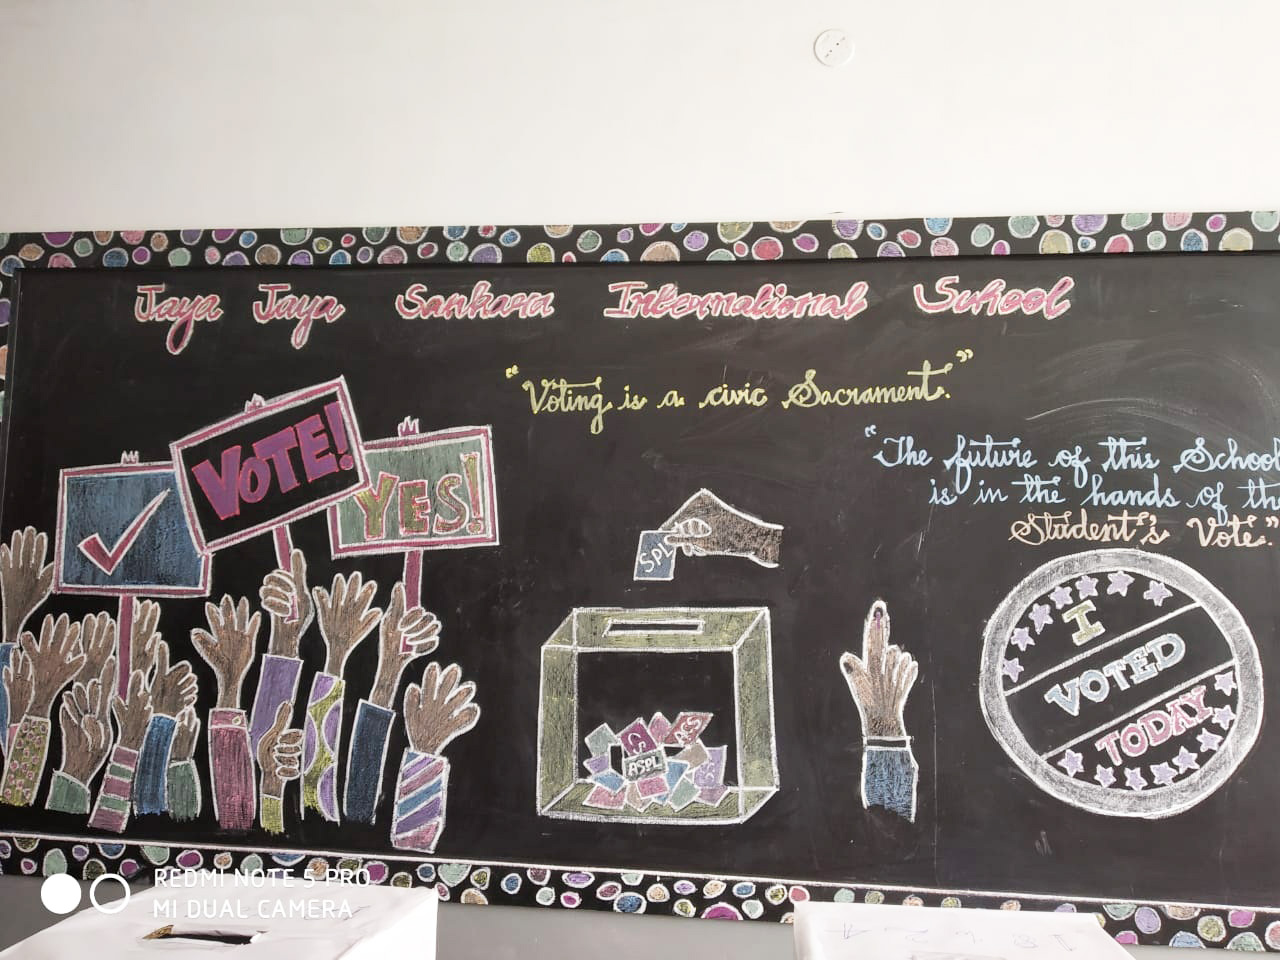 Jaya Jaya Sankara International School
"Voting is a civic Sacrament."
"The future of this School
is in the hands of the
Student's Vote."
VOTE!
YES!
SPL
ASPL
I
VOTED
TODAY
REDMI NOTE 5 PRO
MI DUAL CAMERA